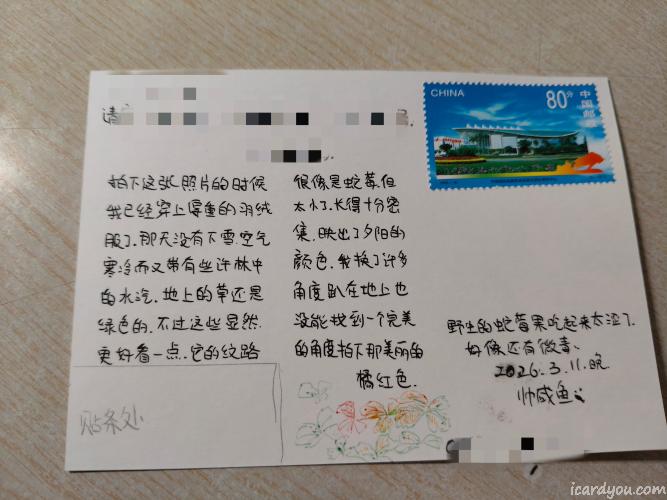 请
CHINA
80分
中国邮政
拍下这张照片的时候
我已经穿上厚重的羽绒
服了.那天没有下雪.空气
寒冷而又带有些许林中
的水汽.地上的草还是
绿色的.不过这些显然
更好看一点.它的纹路
很像是蛇莓但
太小了.长得十分密
集.映出了夕阳的
颜色.我换了许多
角度趴在地上也
没能找到一个完美
的角度拍下那美丽的
橘红色.
野生的蛇莓果吃起来太涩了.
好像还有微毒.
2026.3.11.晚
帅咸鱼
贴条处
icardyou.com